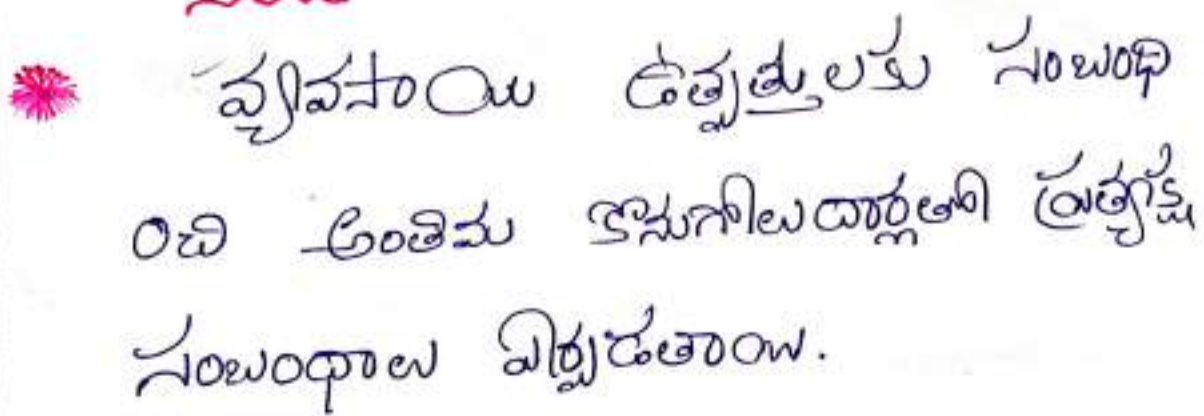 వ్యవసాయి ఉత్పత్తులకు సంబంధి
ంచి అంతిమ కొనుగోలుదార్లతో ప్రత్యక్ష
సంబంధాలు ఏర్పడతాయి.